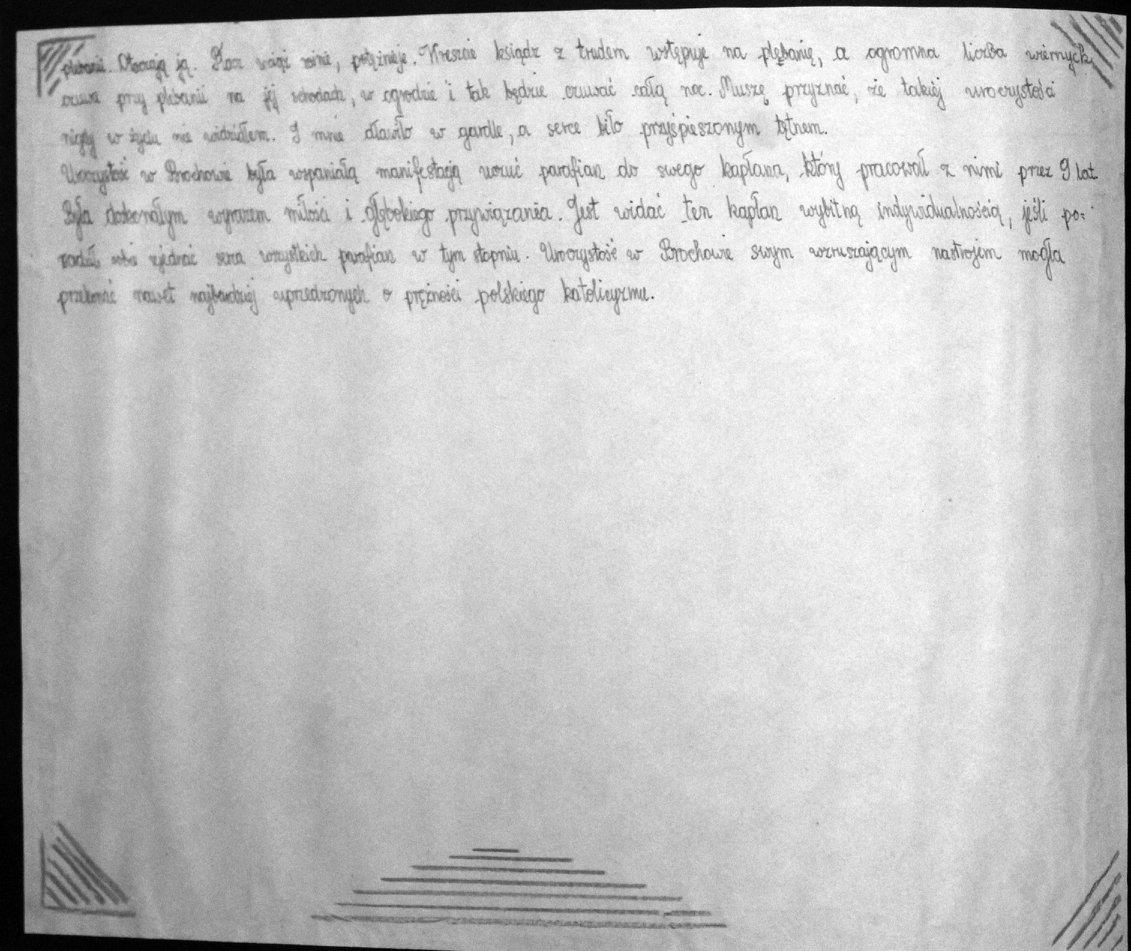 plebanii. Otaczają ją. Płacz wciąż rośnie, potężnieje. Wreszcie ksiądz z trudem wstępuje na plebanię, a ogromna liczba wiernych
czuwa przy plebanii na jej schodach, w ogrodzie i tak będzie czuwać całą noc. Muszę przyznać, że takiej uroczystości
nigdy w życiu nie widziałem. I mnie dławiło w gardle, a serce biło przyśpieszonym tętnem.
Uroczystość w Brochowie była wspaniałą manifestacją uczuć parafian do swego kapłana, który pracował z nimi przez 9 lat.
Była doskonałym wyrazem miłości i głębokiego przywiązania. Jest widać ten kapłan wybitną indywidualnością, jeśli po=
radził sobie zjednać serca wszystkich parafian w tym stopniu. Uroczystość w Brochowie swym wzruszającym nastrojem mogła
przekonać nawet najbardziej uprzedzonych o prężności polskiego katolicyzmu.